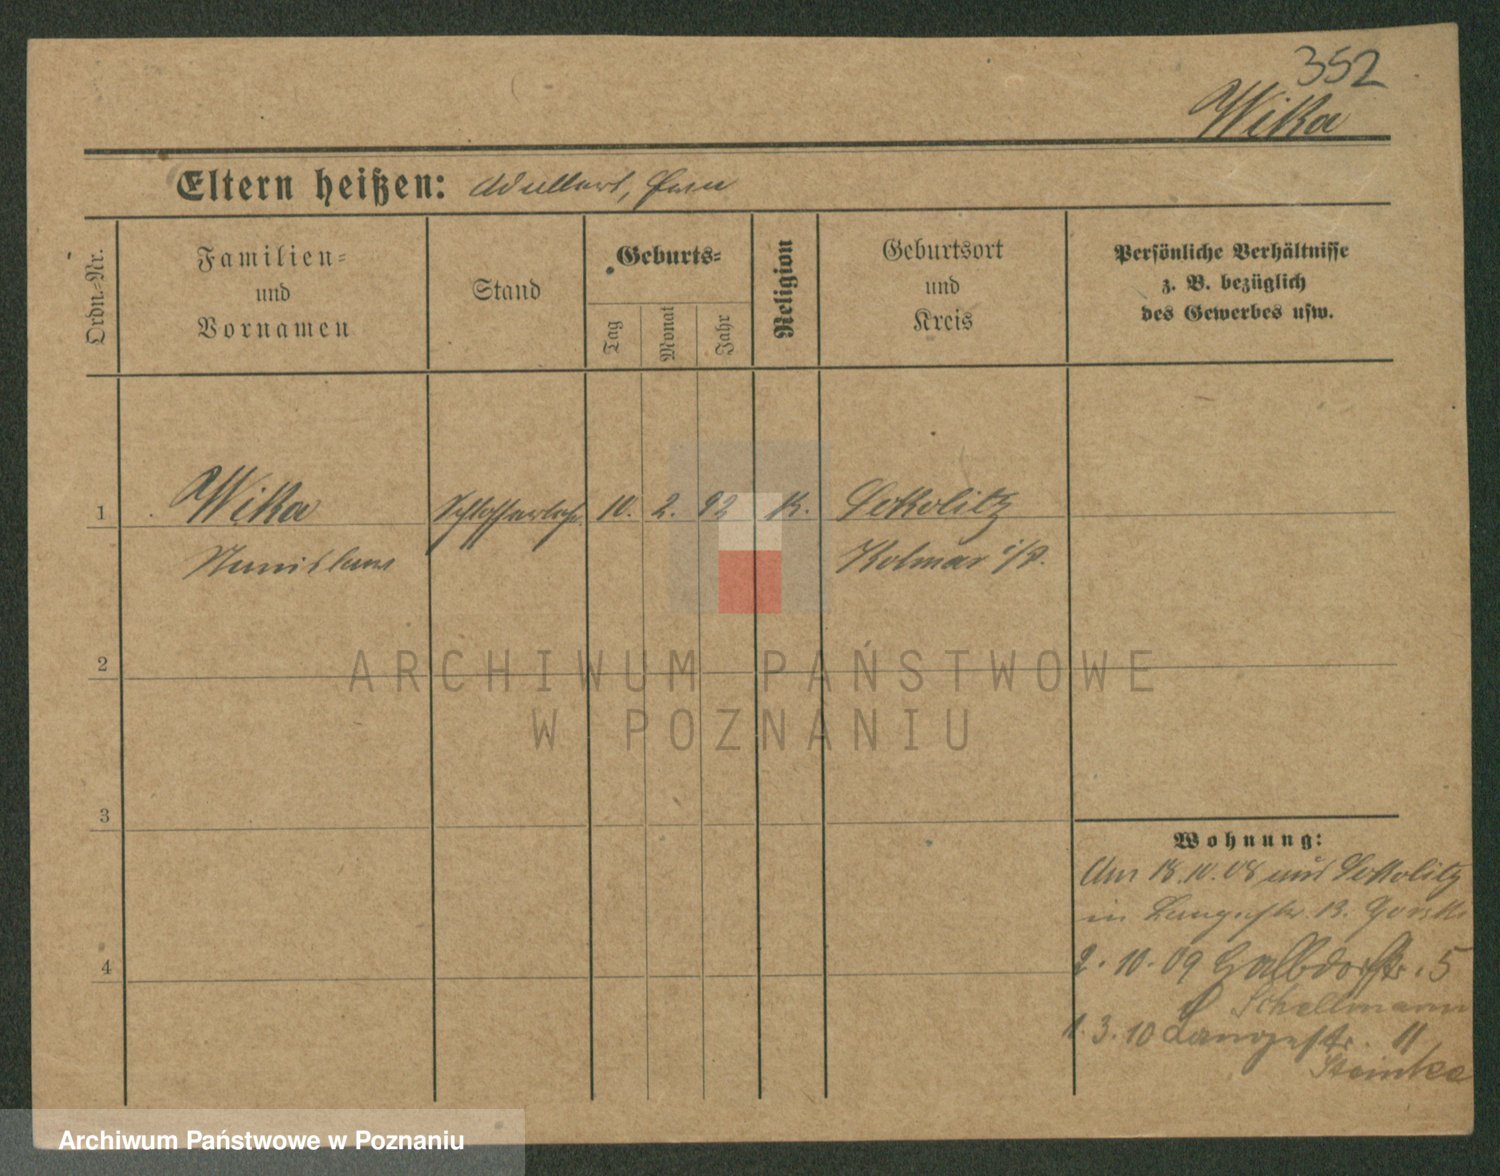 352
Wika
Eltern heißen:
Ordn.-Nr.
Familien-
und
Vornamen
Stand
Geburts-
Tag
Monat
Jahr
Religion
Geburtsort
und
Kreis
Persönliche Verhältnisse
z. B. bezüglich
des Gewerbes usw.
1
Wika
Schlosserlehrl.
10.
2.
92
K.
Sokolitz
Stanislaus
Kolmar i/P.
ARCHIWUM PAŃSTWOWE
W POZNANIU
2
3
4
Wohnung:
Am 18.10.08 aus Sokolitz
in Langestr. 13. Gorski
2.10.09 Halbdorfstr. 5
Schellmann
1.3.10 Langestr. 11
Steinke
Archiwum Państwowe w Poznaniu